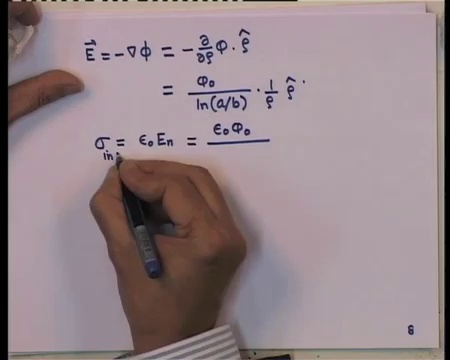 E⃗ = -∇ϕ = - ∂/∂ρ φ · ρ̂
= φ₀ / ln(a/b) · 1/ρ ρ̂ ·
σ_in = ϵ₀ Eₙ = ϵ₀ φ₀ /
8